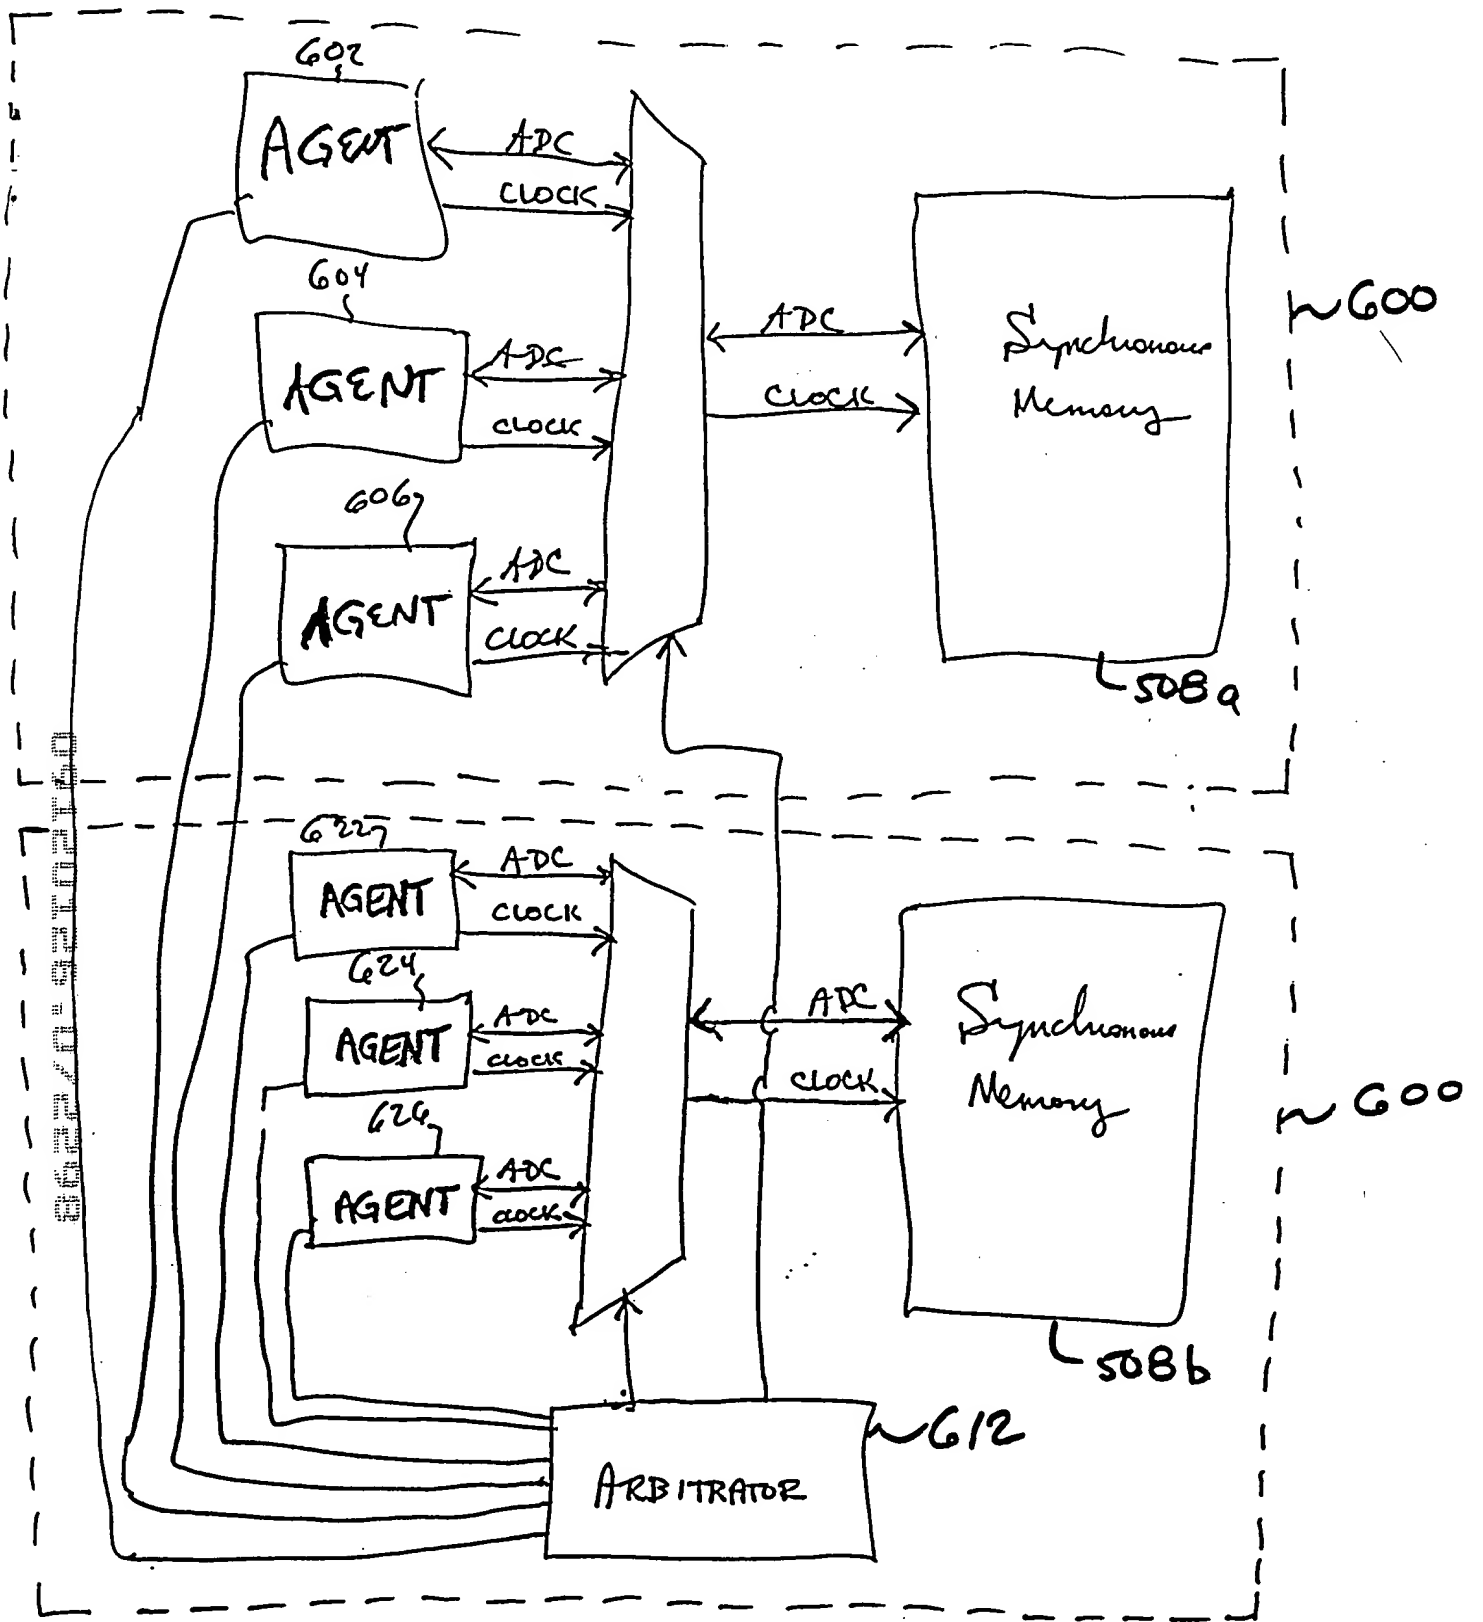 602
AGENT
ADC
CLOCK
604
AGENT
ADC
CLOCK
606
AGENT
ADC
CLOCK
ADC
CLOCK
Synchronous
Memory
600
508a
622
AGENT
ADC
CLOCK
624
AGENT
ADC
CLOCK
626
AGENT
ADC
CLOCK
ADC
CLOCK
Synchronous
Memory
600
508b
612
ARBITRATOR